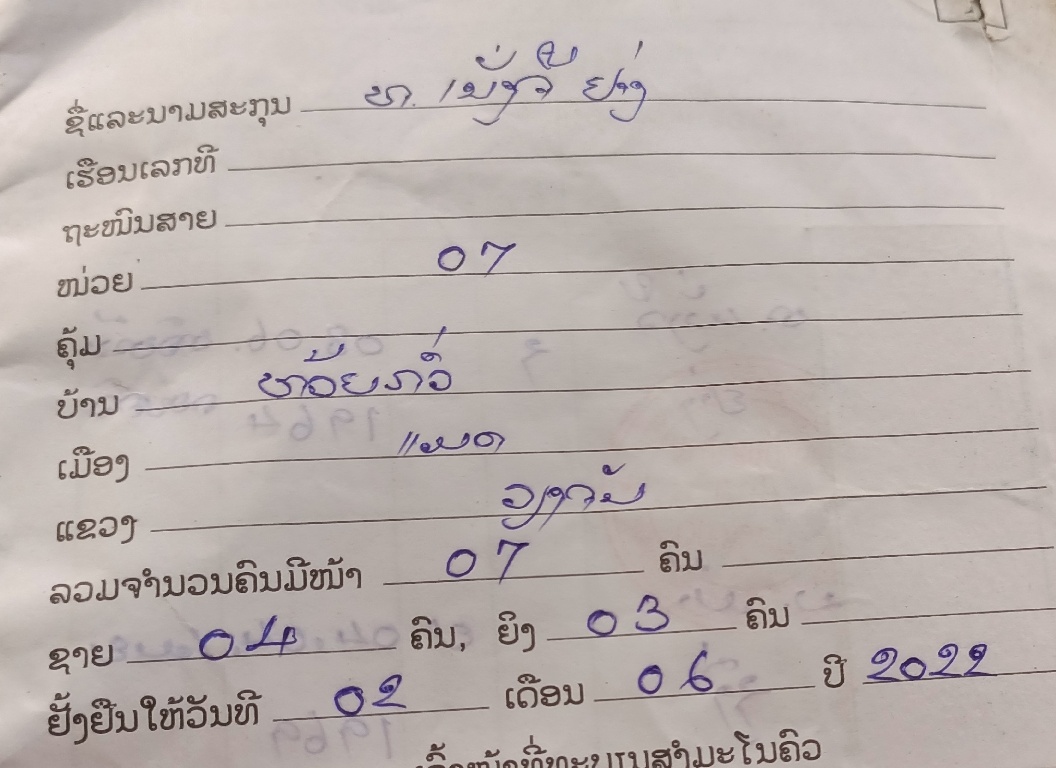 ຊື່ແລະນາມສະກຸນ ທ. ເນັ່ງວື ຢ່າງ
ເຮືອນເລກທີ
ຖະໜົນສາຍ
ໜ່ວຍ 07
ຄຸ້ມ
ບ້ານ ຫ້ວຍກວ່
ເມືອງ ແມດ
ແຂວງ ວຽງຈັນ
ລວມຈຳນວນຄົນມີໜ້າ 07 ຄົນ
ຊາຍ 04 ຄົນ, ຍິງ 03 ຄົນ
ຢັ້ງຢືນໃຫ້ວັນທີ 02 ເດືອນ 06 ປີ 2022
ເຈົ້າໜ້າທີ່ທະບຽນສຳມະໂນຄົວ